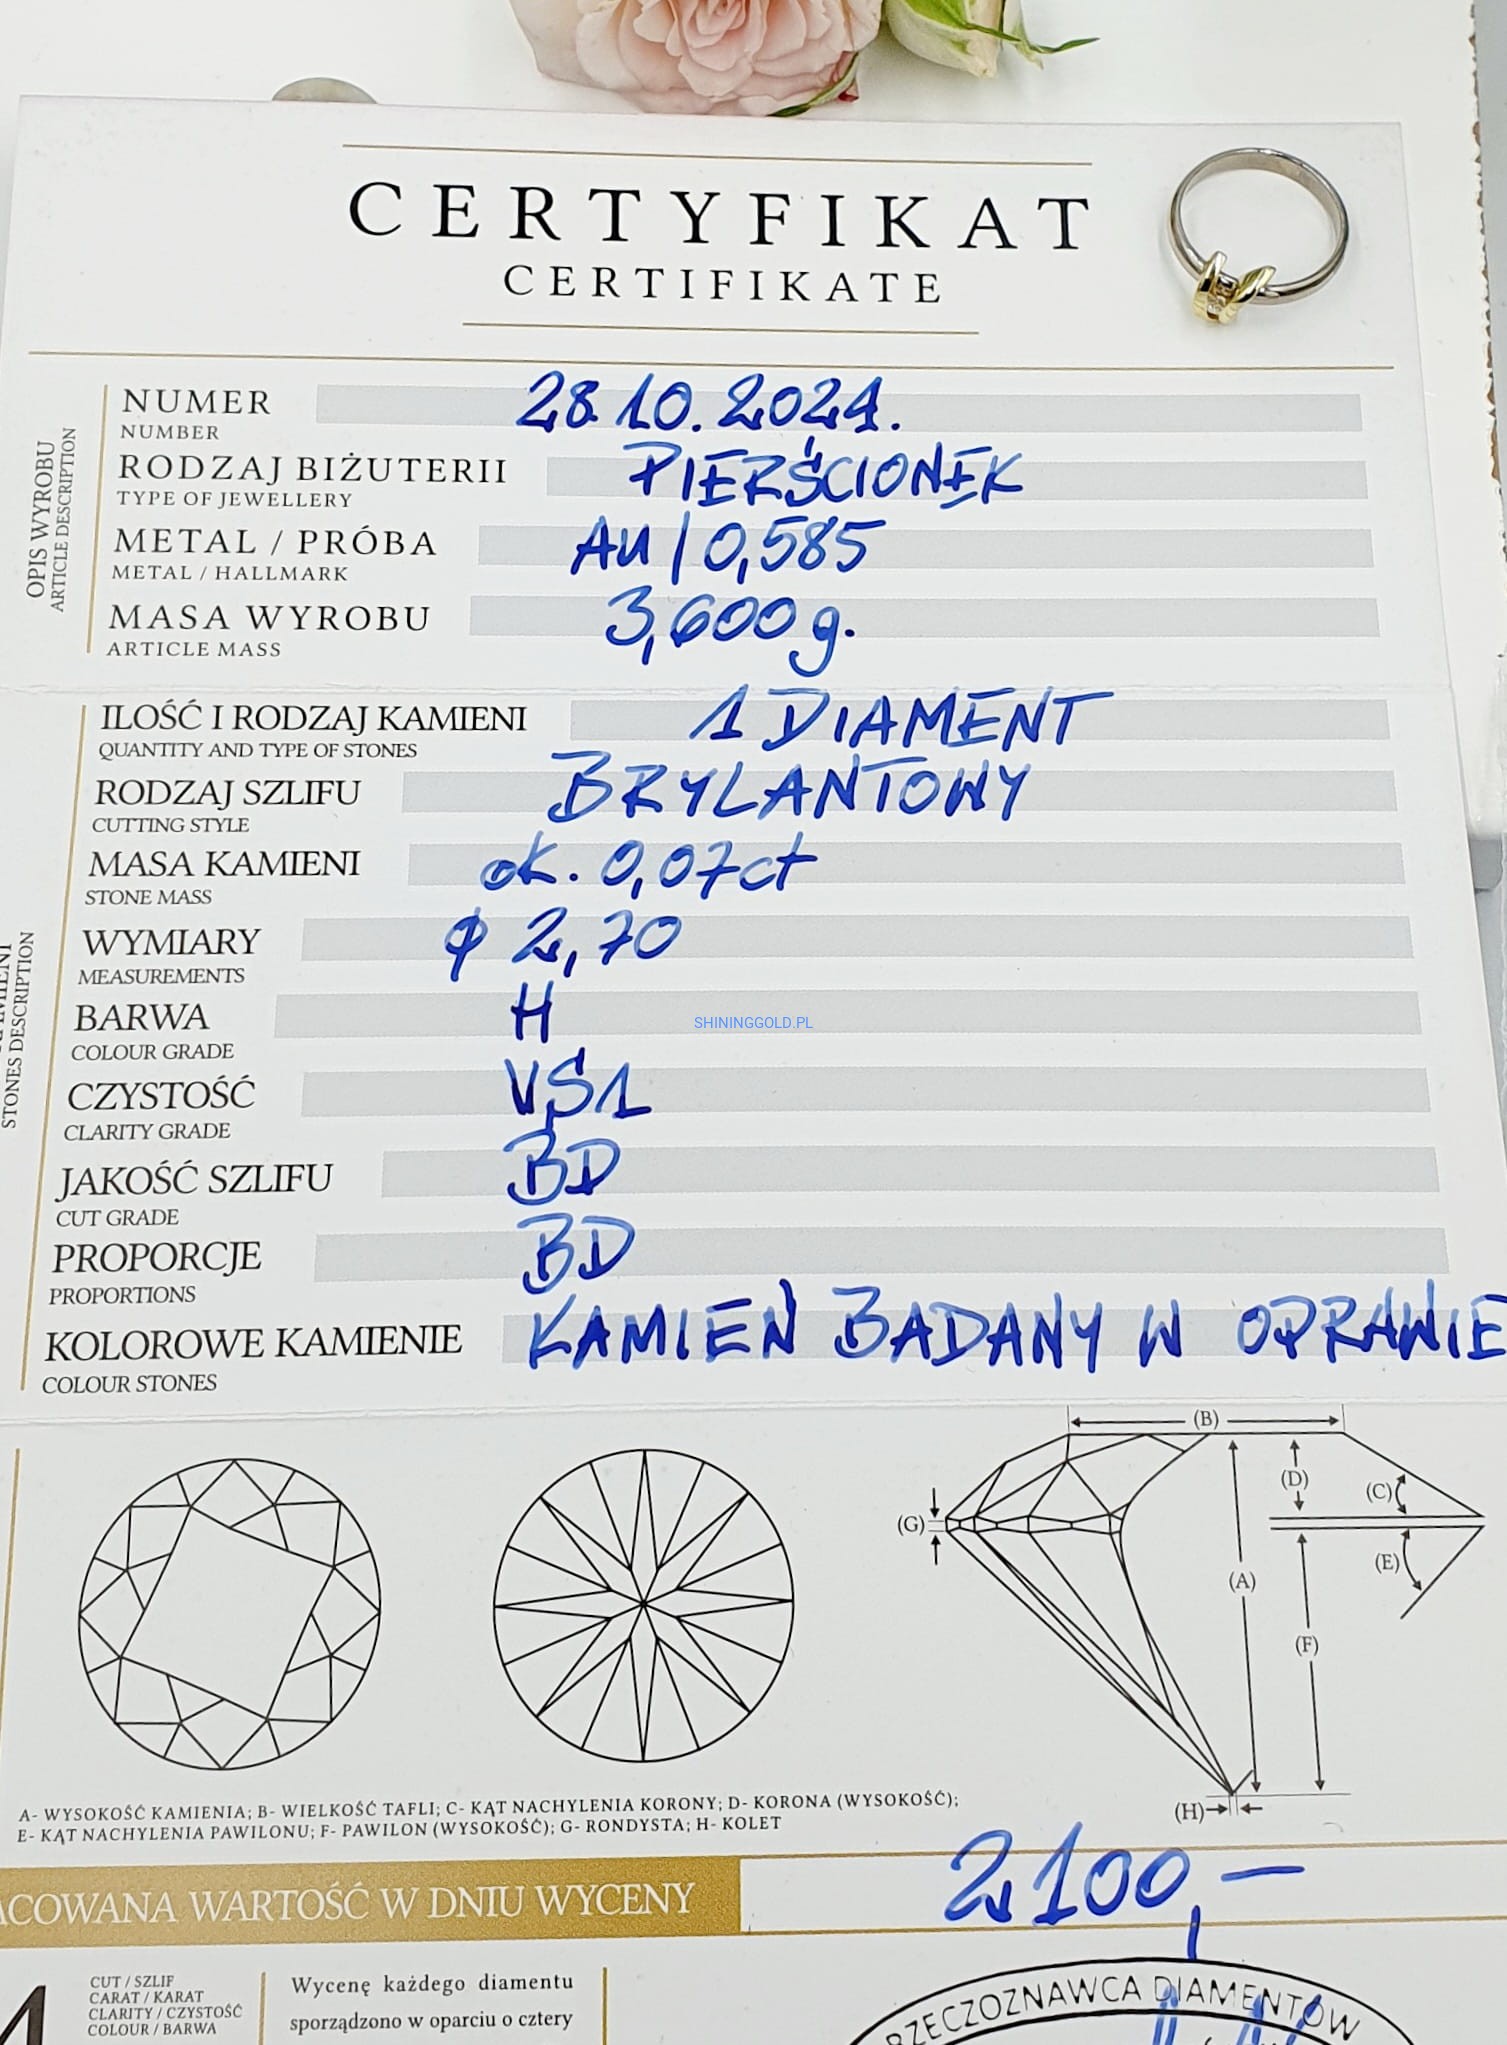 CERTYFIKAT
CERTIFIKATE
OPIS WYROBU
ARTICLE DESCRIPTION
NUMER 28.10.2024.
NUMBER
RODZAJ BIŻUTERII PIERŚCIONEK
TYPE OF JEWELLERY
METAL / PRÓBA Au / 0,585
METAL / HALLMARK
MASA WYROBU 3,600 g.
ARTICLE MASS
STONES DESCRIPTION
ILOŚĆ I RODZAJ KAMIENI 1 DIAMENT
QUANTITY AND TYPE OF STONES
RODZAJ SZLIFU BRYLANTOWY
CUTTING STYLE
MASA KAMIENI ok. 0,07ct
STONE MASS
WYMIARY ϕ 2,70
MEASUREMENTS
BARWA H
COLOUR GRADE
SHININGGOLD.PL
CZYSTOŚĆ VS1
CLARITY GRADE
JAKOŚĆ SZLIFU BD
CUT GRADE
PROPORCJE BD
PROPORTIONS
KOLOROWE KAMIENIE KAMIEŃ BADANY W OPRAWIE
COLOUR STONES
(B)
(D)
(C)
(G)
(E)
(A)
(F)
(H)
A- WYSOKOŚĆ KAMIENIA; B- WIELKOŚĆ TAFLI; C- KĄT NACHYLENIA KORONY; D- KORONA (WYSOKOŚĆ);
E- KĄT NACHYLENIA PAWILONU; F- PAWILON (WYSOKOŚĆ); G- RONDYSTA; H- KOLET
ACOWANA WARTOŚĆ W DNIU WYCENY 2100,-
4
CUT / SZLIF
CARAT / KARAT
CLARITY / CZYSTOŚĆ
COLOUR / BARWA
Wycenę każdego diamentu
sporządzono w oparciu o cztery
RZECZOZNAWCA DIAMENTÓW